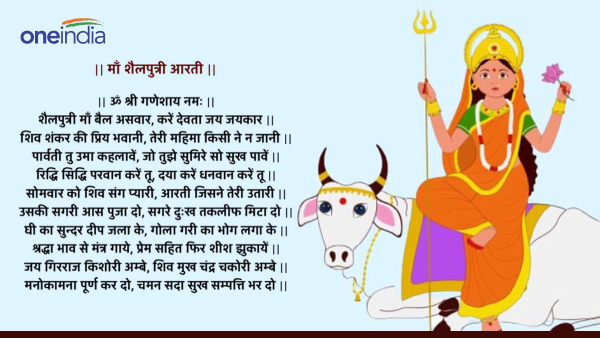 oneindia
|| माँ शैलपुत्री आरती ||
|| ॐ श्री गणेशाय नमः ||
शैलपुत्री माँ बैल असवार, करें देवता जय जयकार ||
शिव शंकर की प्रिय भवानी, तेरी महिमा किसी ने न जानी ||
पार्वती तु उमा कहलावें, जो तुझे सुमिरे सो सुख पावें ||
रिद्धि सिद्धि परवान करें तू, दया करें धनवान करें तू ||
सोमवार को शिव संग प्यारी, आरती जिसने तेरी उतारी ||
उसकी सगरी आस पुजा दो, सगरे दुःख तकलीफ मिटा दो ||
घी का सुन्दर दीप जला के, गोला गरी का भोग लगा के ||
श्रद्धा भाव से मंत्र गाये, प्रेम सहित फिर शीश झुकायें ||
जय गिरराज किशोरी अम्बे, शिव मुख चंद्र चकोरी अम्बे ||
मनोकामना पूर्ण कर दो, चमन सदा सुख सम्पत्ति भर दो ||